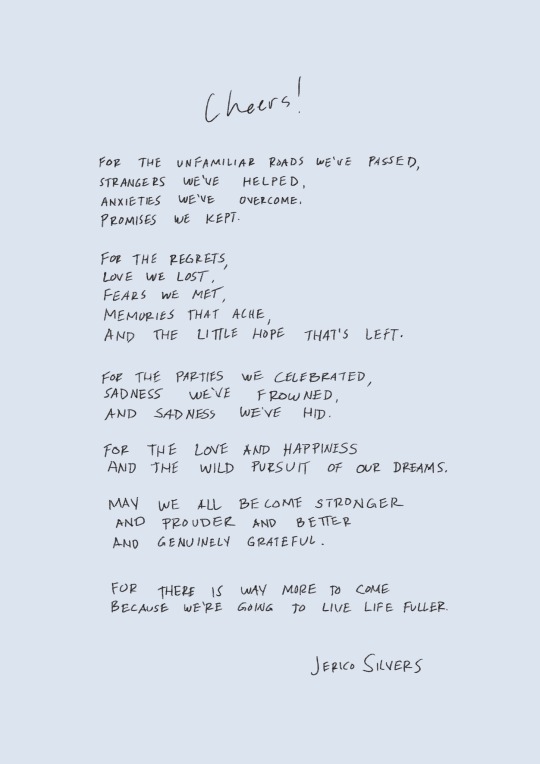 Cheers!
FOR THE UNFAMILIAR ROADS WE'VE PASSED,
STRANGERS WE'VE HELPED,
ANXIETIES WE'VE OVERCOME.
PROMISES WE KEPT.
FOR THE REGRETS,
LOVE WE LOST,
FEARS WE MET,
MEMORIES THAT ACHE,
AND THE LITTLE HOPE THAT'S LEFT.
FOR THE PARTIES WE CELEBRATED,
SADNESS WE'VE FROWNED,
AND SADNESS WE'VE HID.
FOR THE LOVE AND HAPPINESS
AND THE WILD PURSUIT OF OUR DREAMS.
MAY WE ALL BECOME STRONGER
AND PROUDER AND BETTER
AND GENUINELY GRATEFUL.
FOR THERE IS WAY MORE TO COME
BECAUSE WE'RE GOING TO LIVE LIFE FULLER.
JERICO SILVERS